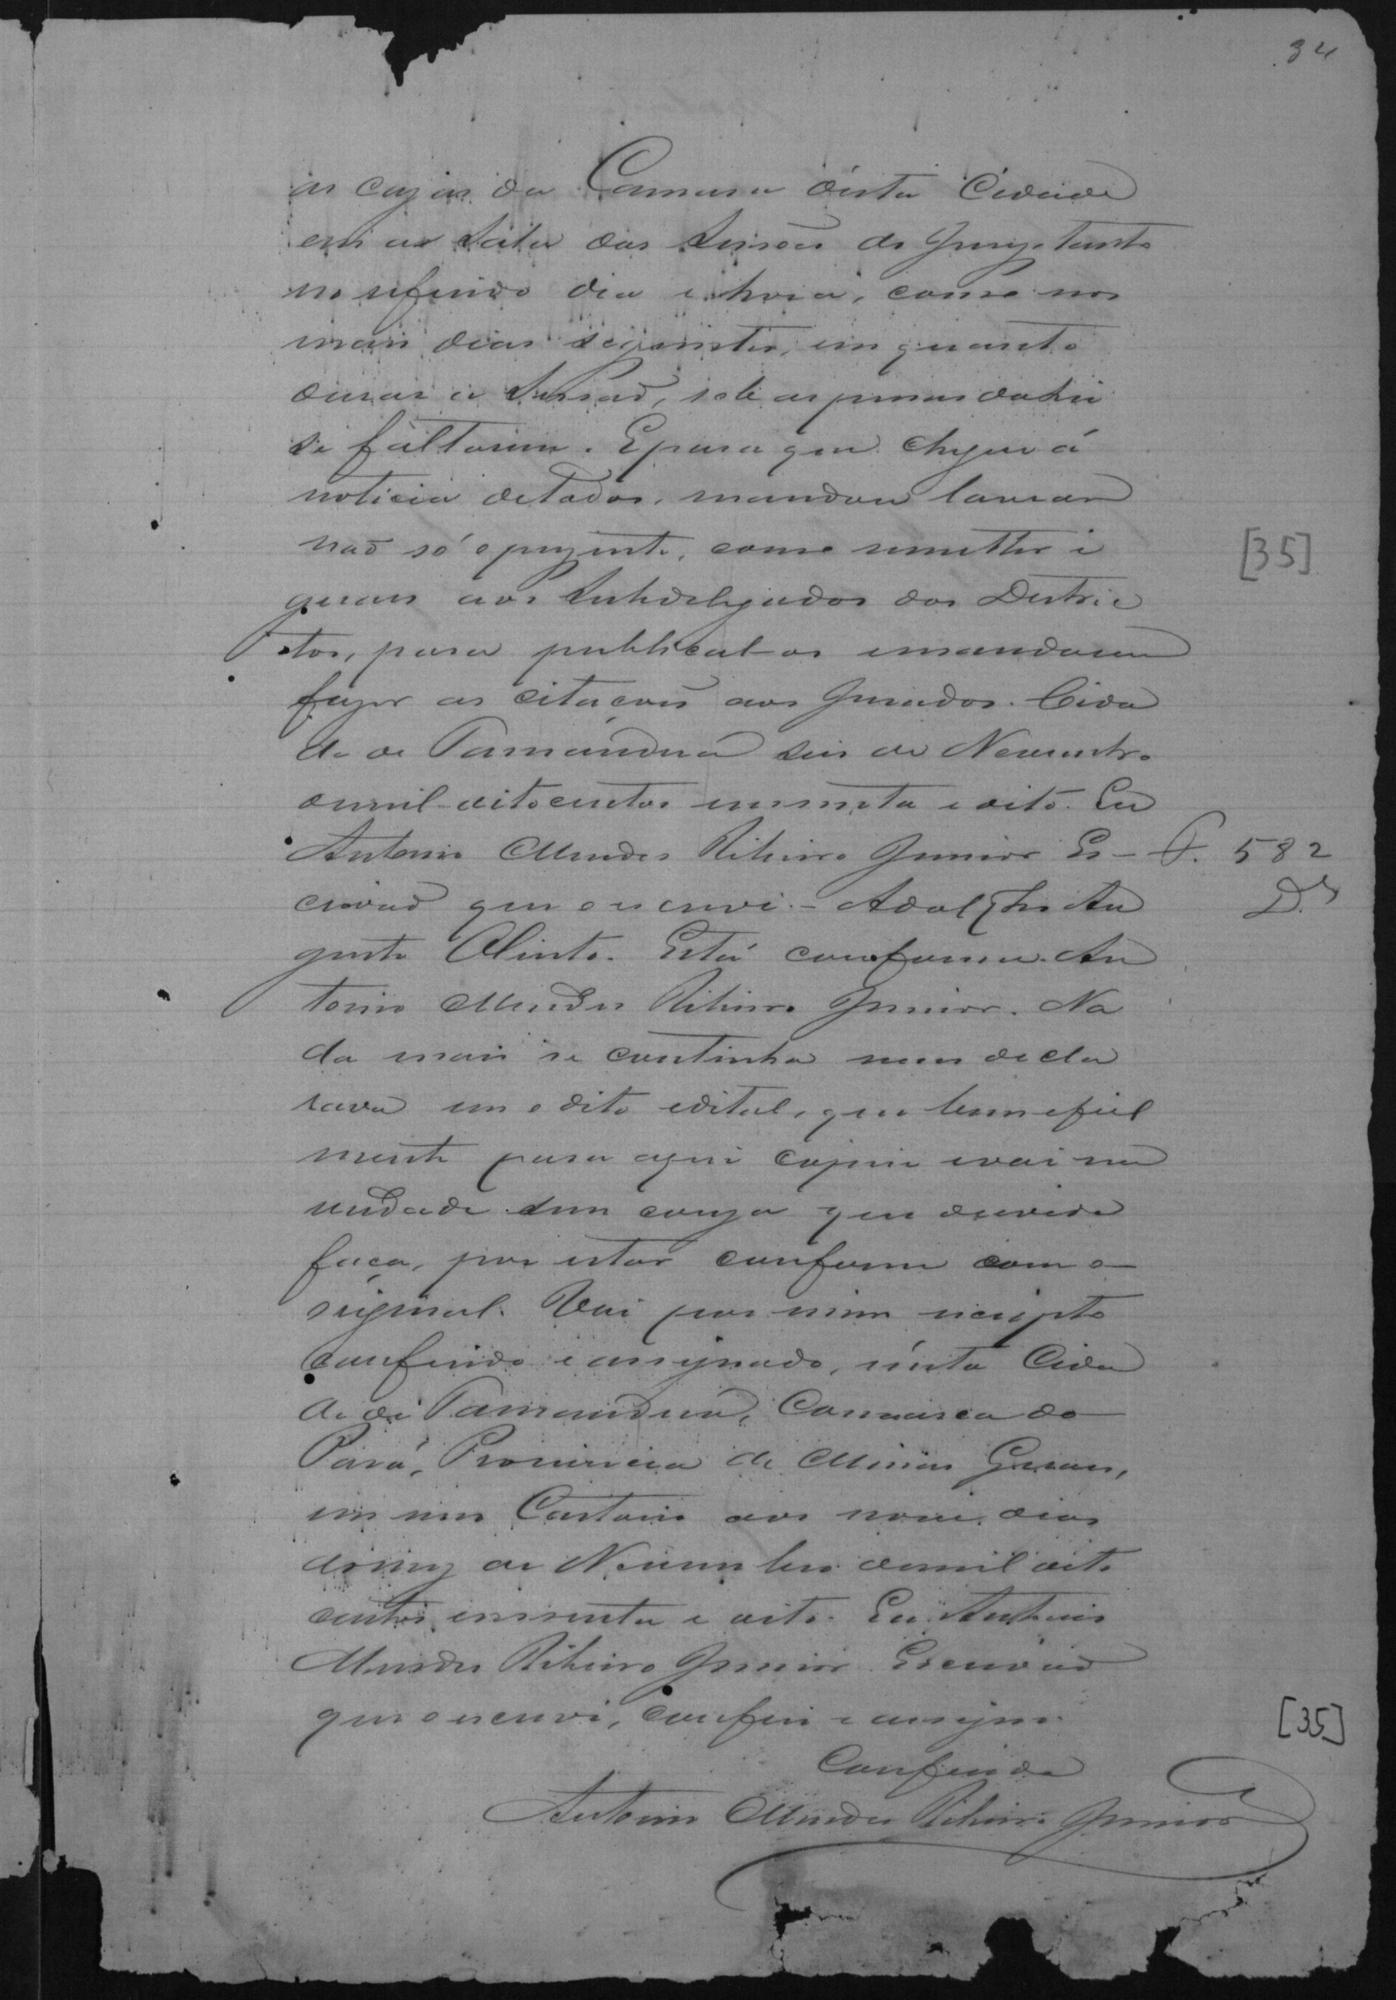 34
as cazas da Camara désta Cidade
em a Sala das Sessões do Jury, tanto
no referido dia e hora, como nos
mais dias seguintes, em quanto
durar a Sessaõ, sob as penas da Lei
se faltarem. E para que chegue á
noticia de todos, mandou lavrar
naõ só o prezente, como remetter i
guaes aos Subdelegados dos Distric
tos, para publical-os e mandarem
fazer as citaçoēs aos Jurados. Cida
de de Tamanduá seis de Novembro
de mil oitocentos e secenta e oito. Eu
Antonio Mendes Ribeiro Junior Es- f. 582
crivaõ que o escrevi.- Adolpho Au D.s
gusto Olinto. Está conforme. An
tonio Mendes Ribeiro Junior. Na
da mais se continha nem decla
rava em o dito edital, que bem e fiel
mente para aqui copiei e vai na
verdade sem couza que duvida
faça, por estar conforme com o
original. Vai por mim escripto
conferido e assignado, nésta Cida
de de Tamanduá, Comarca do
Pará, Provincia de Minas Geraes,
em meu Cartorio aos nove dias
do mez de Novembro de mil oito
centos e secenta e oito. Eu Antonio
Mendes Ribeiro Junior Escrivaõ
que o escrevi, conferi e assigno.
Conferido
Antonio Mendes Ribeiro Junior
[35]
[35]